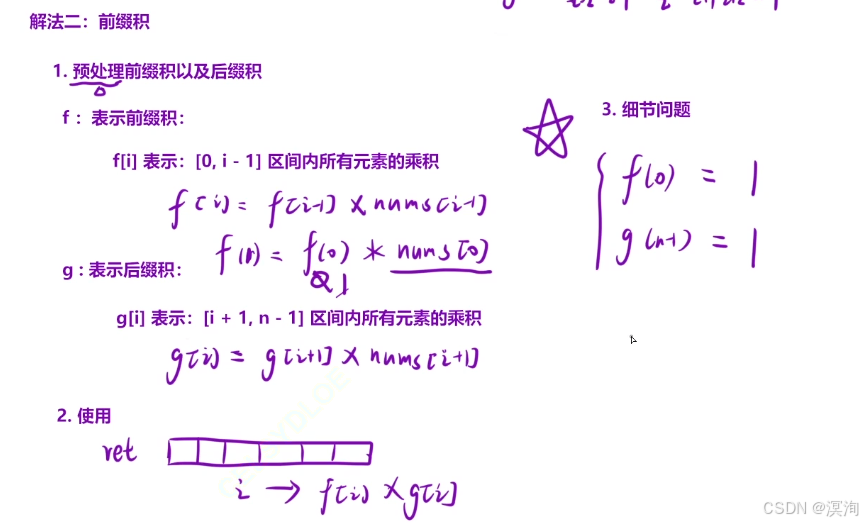 解法二：前缀积
1. 预处理前缀积以及后缀积
f： 表示前缀积：
f[i] 表示：[0, i - 1] 区间内所有元素的乘积
f[i] = f[i-1] × nums[i-1]
f(1) = f(0) * nums[0]
1
g : 表示后缀积：
g[i] 表示：[i + 1, n - 1] 区间内所有元素的乘积
g[i] = g[i+1] × nums[i+1]
2. 使用
ret
i → f[i] × g[i]
3. 细节问题
f(0) = 1
g(n-1) = 1
CSDN @溟洵